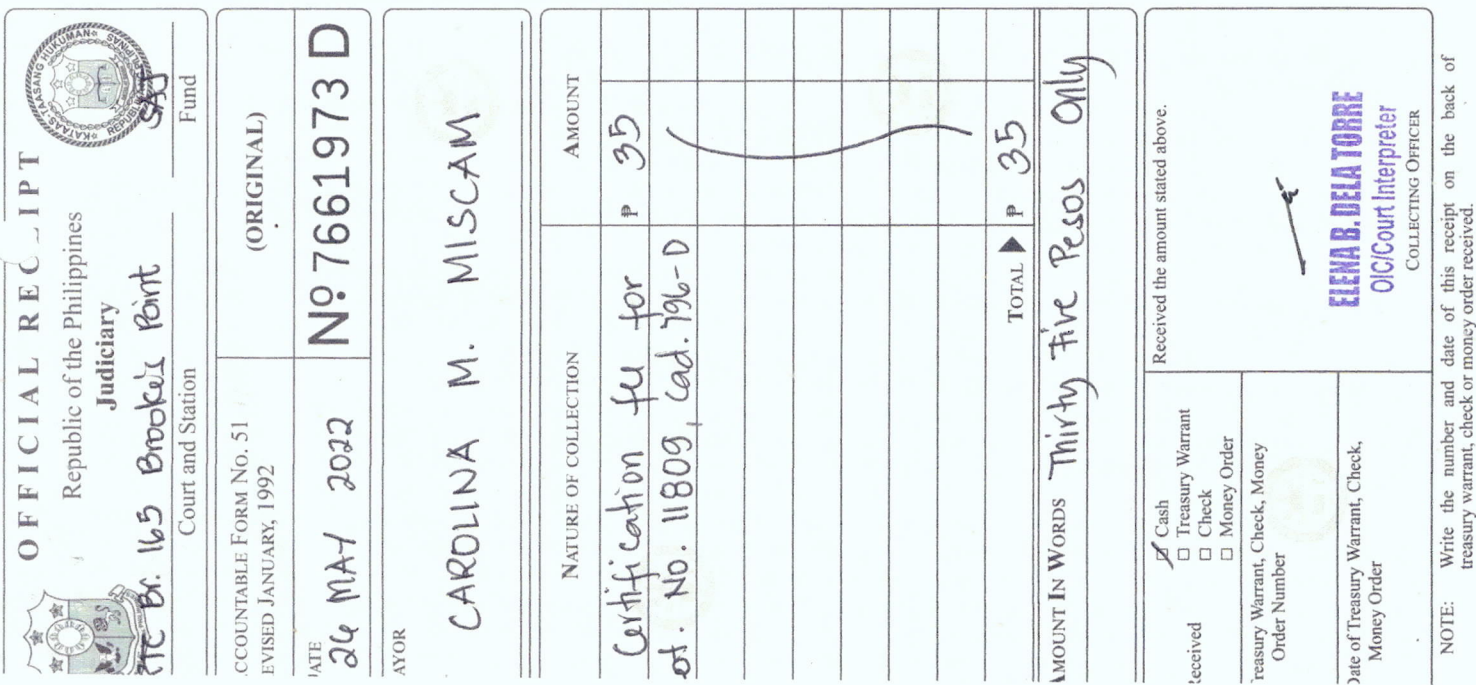 OFFICIAL RECEIPT
Republic of the Philippines
Judiciary
KATAAS-TAASANG HUKUMAN
REPUBLIC PILIPINAS
RTC Br. 165 Brooke's Point SAJ
Court and Station Fund
CCOUNTABLE FORM NO. 51
EVISED JANUARY, 1992
(ORIGINAL)
ATE
26 MAY 2022
Nº 7661973 D
AYOR
CAROLINA M. MISCAM
NATURE OF COLLECTION AMOUNT
Certification fee for ₱ 35
ot. No. 11809, Cad. 796-D
TOTAL ▶ ₱ 35
MOUNT IN WORDS Thirty Five Pesos Only
eceived
Cash
Treasury Warrant
Check
Money Order
reasury Warrant, Check, Money
Order Number
Date of Treasury Warrant, Check,
Money Order
Received the amount stated above.
ELENA B. DELA TORRE
OIC/Court Interpreter
COLLECTING OFFICER
NOTE: Write the number and date of this receipt on the back of
treasury warrant, check or money order received.